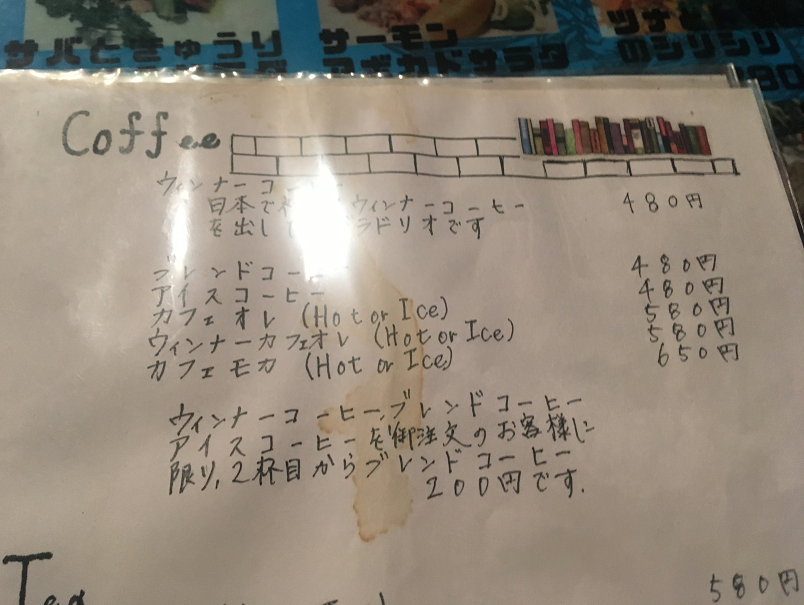 サバときゅうり
サーモン
アボカドサラダ
ツナと
のシリシリ
Coffee
ウィンナーコーヒー
日本で ウィンナーコーヒー 480円
を出し ラドリオです
ブレンドコーヒー 480円
アイスコーヒー 480円
カフェオレ (Hot or Ice) 580円
ウィンナーカフェオレ (Hot or Ice) 580円
カフェモカ (Hot or Ice) 650円
ウィンナーコーヒー,ブレンドコーヒー
アイスコーヒーを御注文のお客様に
限り,2杯目からブレンドコーヒー
200円です.
Tea
580円